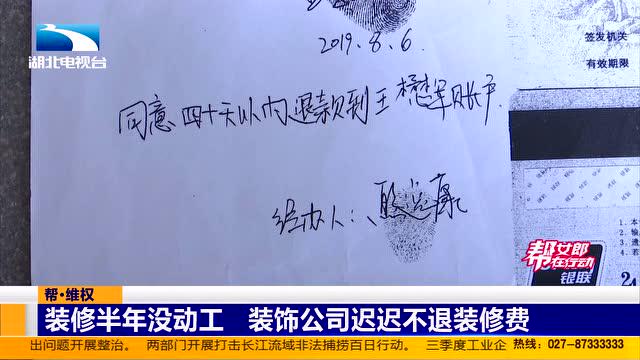 湖北电视台
2019.8.6.
签发机关
有效期限
同意四十天以内退款到王
账户
经办人:
帮女郎
在行动
银联
帮·维权
装修半年没动工 装饰公司迟迟不退装修费
出问题开展整治。 两部门开展打击长江流域非法捕捞百日行动。 三季度工业企 热线:027-87333333